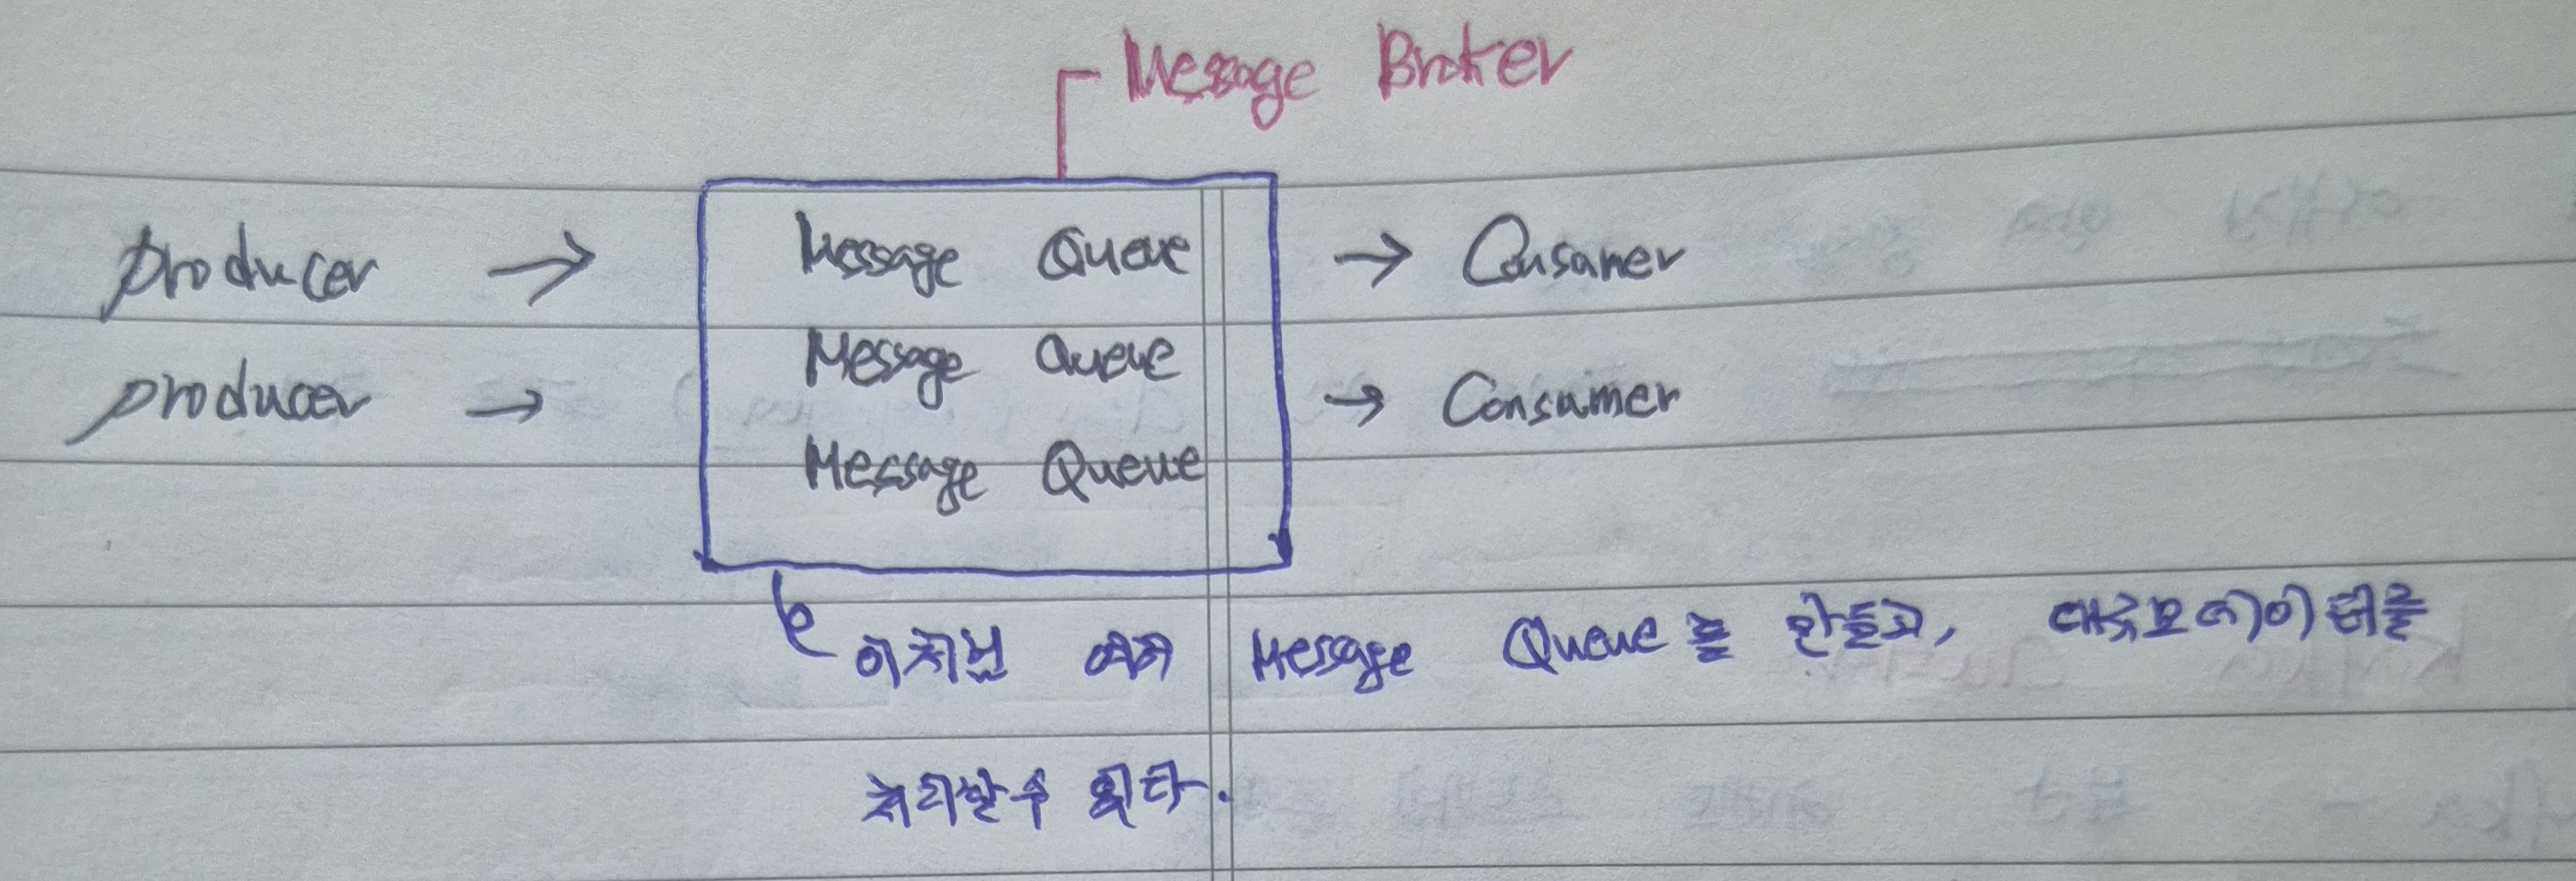 Message Broker
producer → Message Queue → Consamer
Message Queue
producer → → Consamer
Message Queue
이처럼 여러 Message Queue를 만들고, 대규모 데이터를
처리할 수 있다.